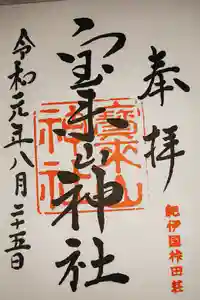 奉拝
紀伊国桛田荘
宝来山神社
寳来山神社
令和元年八月二十五日